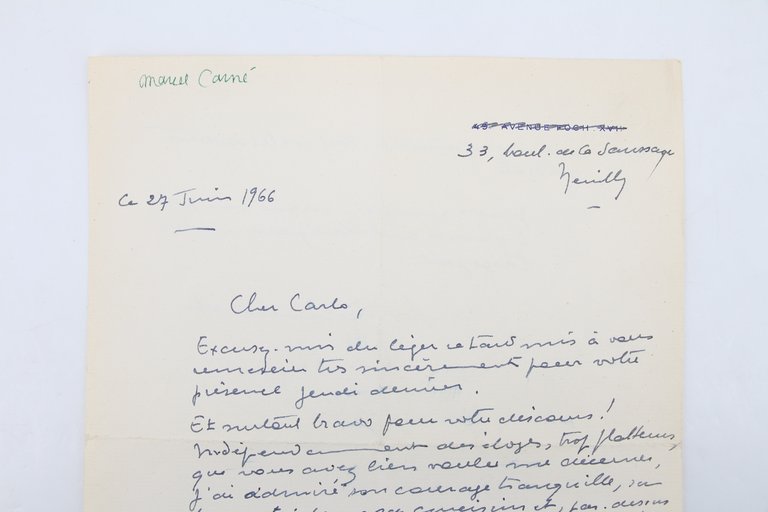 Marcel Carné
33, boul. de la Saussaye
Neuilly
Ce 27 Juin 1966
Cher Carlo,
Excusez-moi du léger retard mis à vous
remercier très sincèrement pour votre
présence jeudi dernier.
Et surtout bravo pour votre discours !
Indépendamment des éloges, trop flatteurs,
que vous avez bien voulu me décerner,
j'ai admiré son courage tranquille, sa
concision et, par-dessus